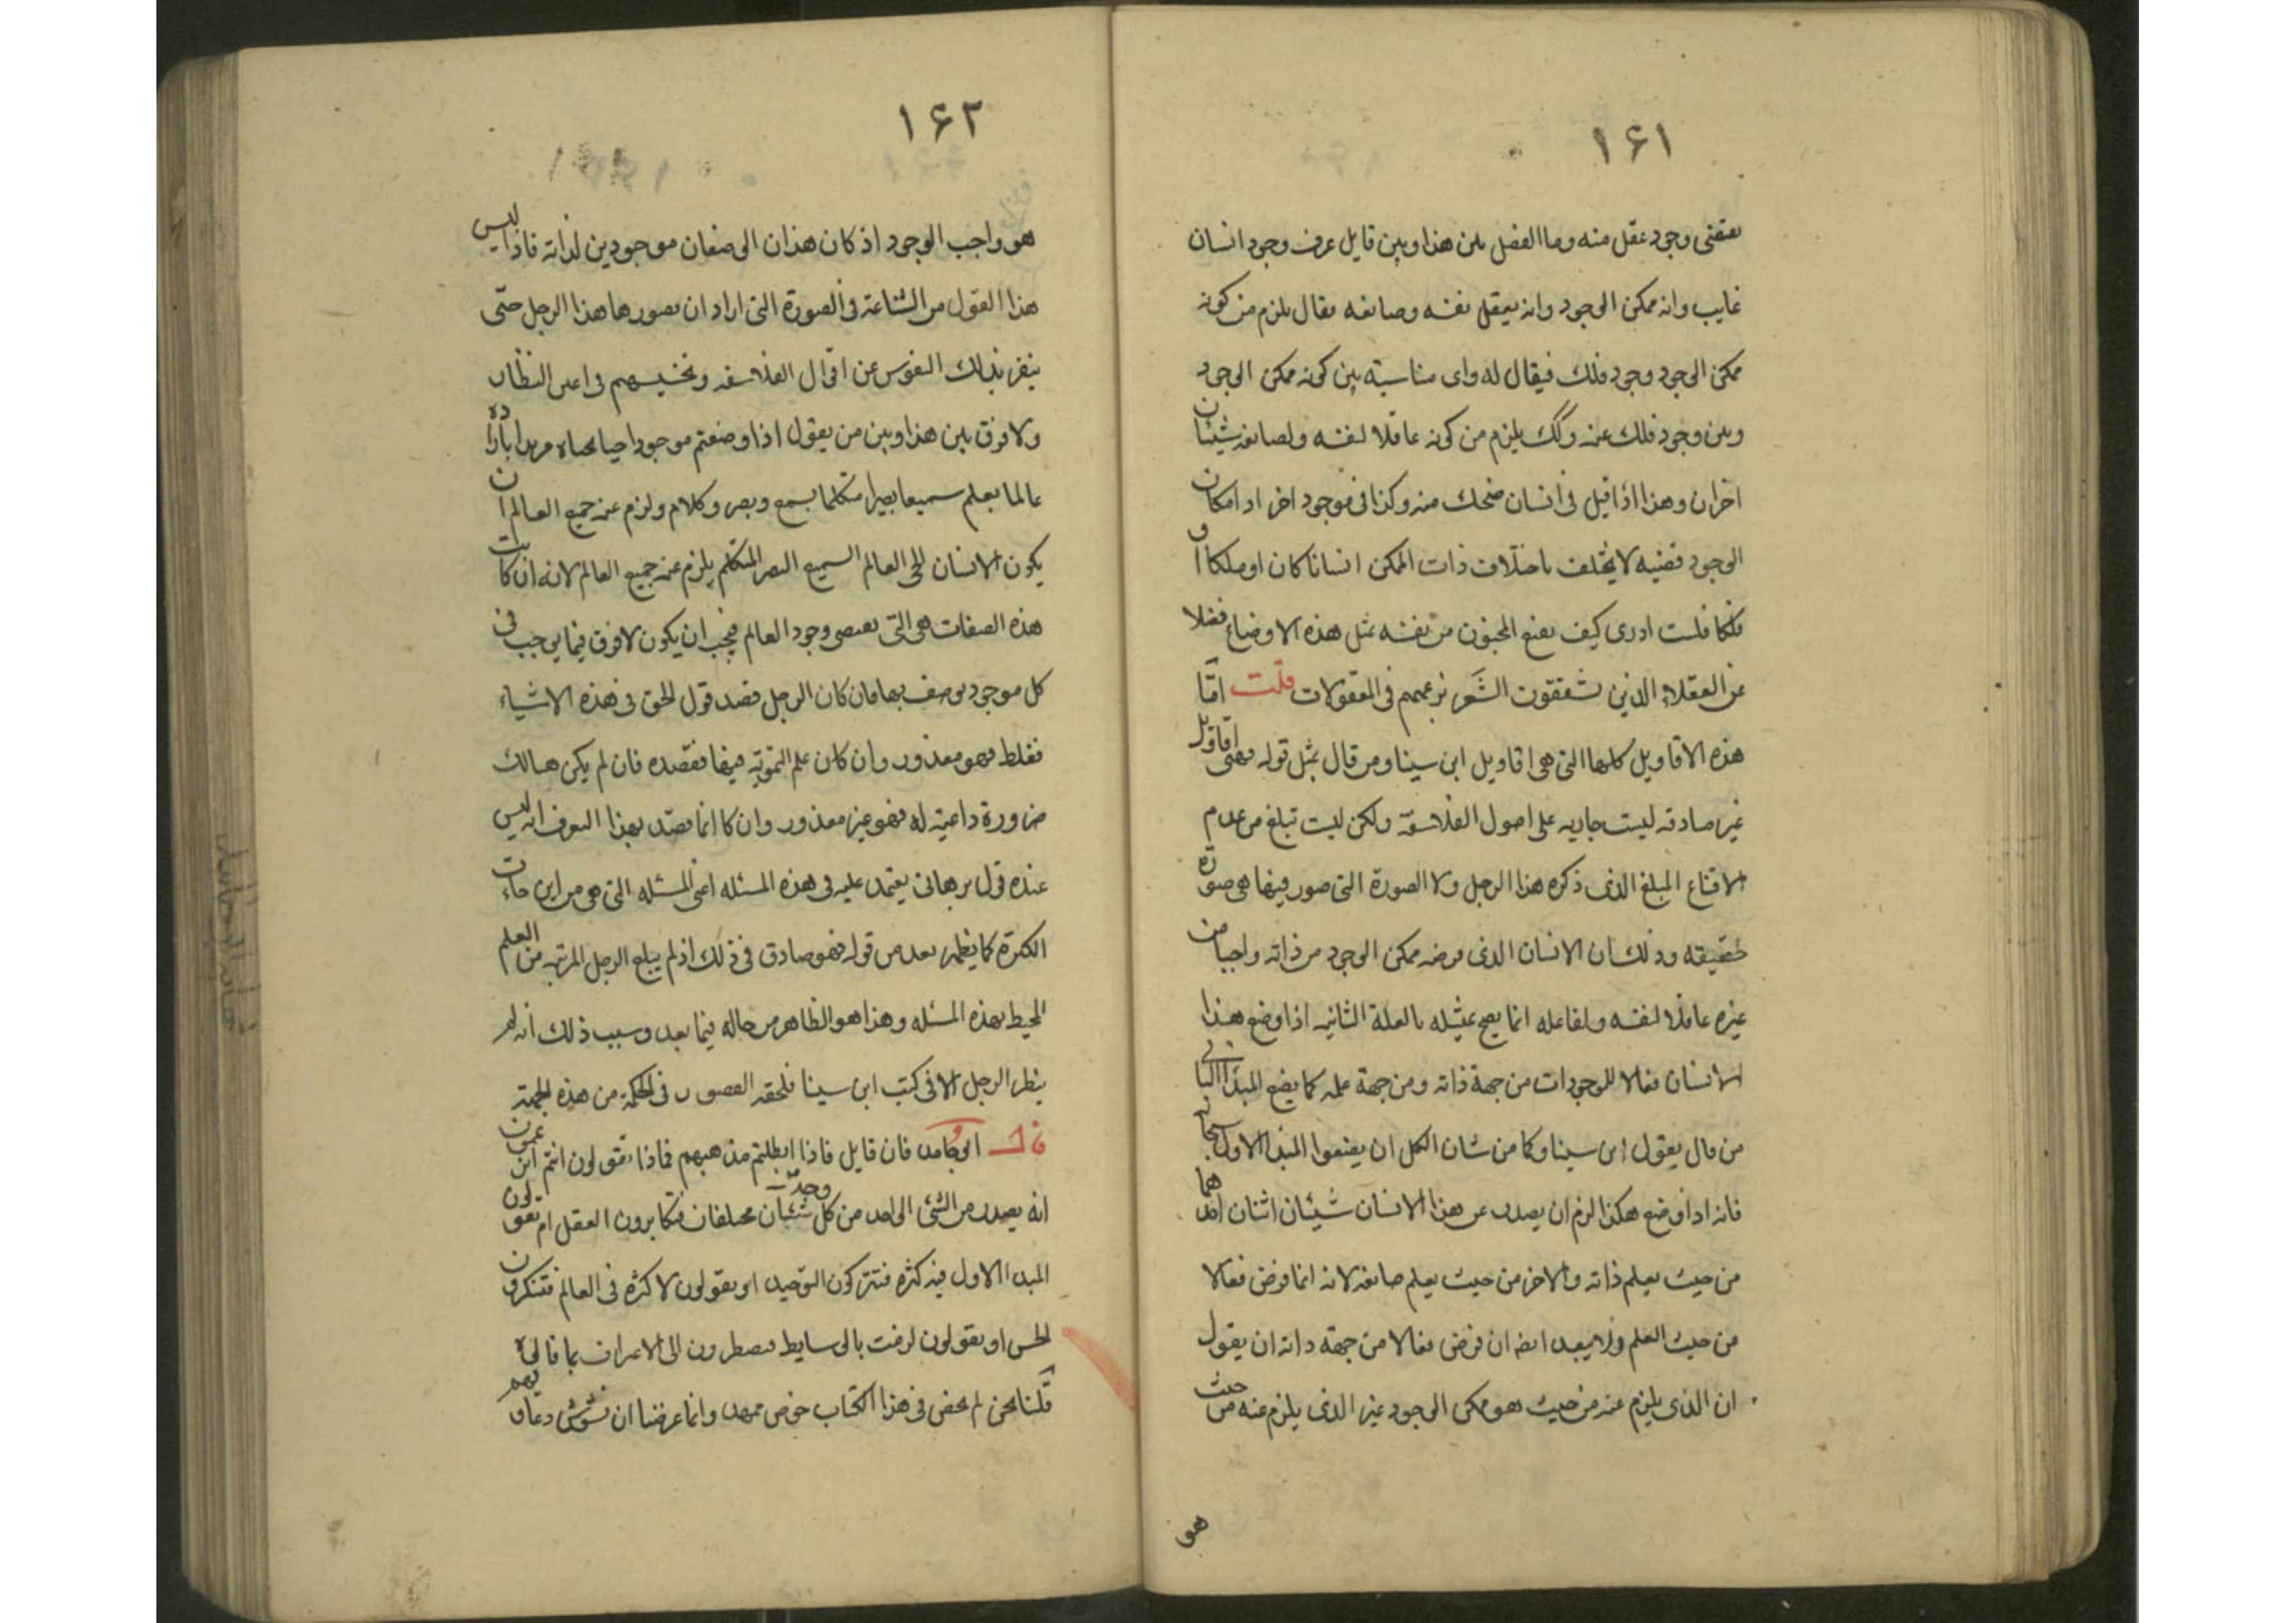 ١۶١
يقتضى وجود عقل منه وما الفصل بين هذا وبين قايل عرف وجود انسان
غايب وانه ممكن الوجود وانه يعقل نفسه وصانعه فقال يلزم من كونه
ممكن الوجود وجود فلك فيقال له واى مناسبة بين كونه ممكن الوجود
وبين وجود فلك عنه وكك يلزم من كونه عاقلا لنفسه ولصانعه شيئان
اخران وهذا اذا قيل فى انسان ضحك منه وكذا فى موجود اخر اذ امكان
الوجود قضيه لا يختلف باختلاف ذات الممكن انسانا كان او ملكا او
فلكا فلست ادرى كيف يقنع المجنون من نفسه بمثل هذه الاوضاع فضلا
عن العقلاء الذين يشققون الشعر بزعمهم فى المعقولات قلت امّا
هذه الاقاويل كلها التى هى اقاويل ابن سينا ومن قال بمثل قوله فهى اقاويل
غير صادقه ليست جاريه على اصول الفلاسفة ولكن ليست تبلغ من عدم
الاقناع المبلغ الذى ذكره هذا الرجل ولا الصورة التى صور فيها هى صورة
حقيقه وذلك ان الانسان الذى فرضه ممكن الوجود من ذاته واجبا من
غيره عاقلا لنفسه ولفاعله انما يصح تمثيله بالعلة الثانيه اذا وضع هذا
الانسان فعالا للموجودات من جهة ذاته ومن جهة علمه كما يضع المبدا الثانى
من قال بقول ابن سينا وكما من شان الكل ان يضعوا المبدا الاول سبحانه
فانه اذا وضع هكذا لزم ان يصدر عن هذا الانسان شيئان اثنان احدهما
من حيث يعلم ذاته والاخر من حيث يعلم صانعه لانه انما فرض فعالا
من حيث العلم ولا يبعد ايضه ان فرض فعالا من جهة ذاته ان يقول
ان الذى يلزم عنه من حيث هو ممكن الوجود غير الذى يلزم عنه من حيث
هو
١۶٢
هو واجب الوجود اذ كان هذان الوصفان موجودين لذاته فاذا ليس
هذا القول من الشناعة فى الصورة التى اراد ان يصورها هذا الرجل حتّى
ينفر بذلك النفوس عن اقوال الفلاسفه ويخسيسهم فى اعين النظار
ولا فرق بين هذا وبين من يقول اذا وضعتم موجودا حيا بحياه مريدا بارادة
عالما بعلم سميعا بصيرا متكلما بسمع وبصر وكلام ولزم عنه جميع العالم ان
يكون الانسان الحى العالم السميع البصير المتكلم يلزم عنه جميع العالم لانه ان كانت
هذه الصفات هى التى تقتضى وجود العالم فيجب ان يكون لا فرق فيما يوجب فى
كل موجود يوصف بها فان كان الرجل قصد قول الحق فى هذه الاشياء
فغلط فهو معذور وان كان علم التمويه فيها فقصده فان لم يكن هنالك
ضرورة داعية له فهو غير معذور وان كا انما قصد بهذا ليعرف انه ليس
عنده قول برهانى يعتمد عليه فى هذه المسئله اعنى المسئله التى هى من اين جاءت
الكثرة كما يظهر بعد من قوله فهو صادق فى ذلك اذ لم يبلغ الرجل المرتبه من العلم
المحيط بهذه المسئله وهذا هو الظاهر من حاله فيما بعد وسبب ذلك انه لم
ينظر الرجل الا فى كتب ابن سينا فلحقه القصور فى الحكمة من هذه الجهة
قال ابو حامد فان قايل فاذا ابطلتم مذهبهم فماذا تقولون انتم اتزعمون
انه يصدر من الشئ الواحد من كل وجه شيئان مختلفان فتكابرون العقل ام تقولون
المبدا الاول فيه كثره فتتركون التوحيد او يقولون لا كثره فى العالم فتنكرون
الحس او يقولون لزمت بالوسايط فيضطرون الى الاعتراف بما قالوه
قلنا نحن لم نخض فى هذا الكتاب خوض ممهد وانما غرضنا ان نشوش دعاويهم